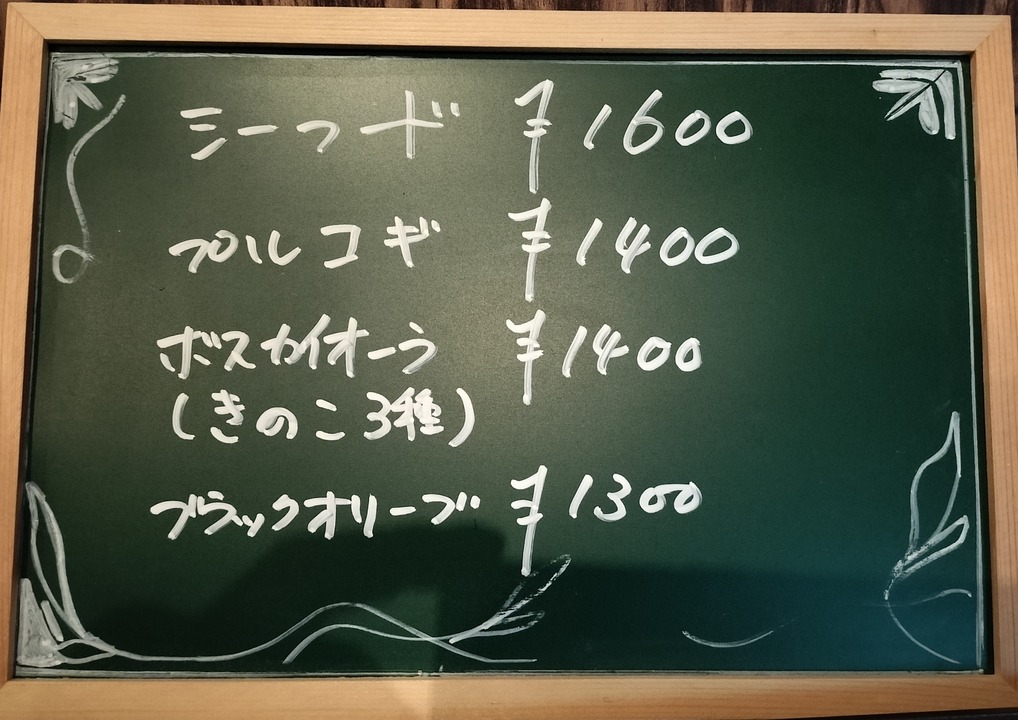 シーフード ¥1600
プルコギ ¥1400
ボスカイオーラ ¥1400
(きのこ3種)
ブラックオリーブ ¥1300